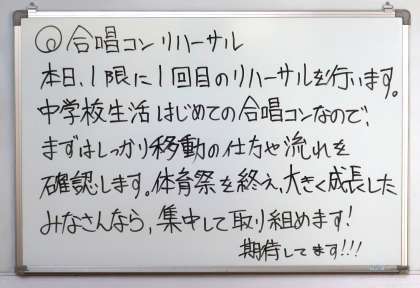 ◎合唱コンリハーサル
本日、1限に1回目のリハーサルを行います。
中学校生活はじめての合唱コンなので、
まずはしっかり移動の仕方や流れを
確認します。体育祭を終え、大きく成長した
みなさんなら、集中して取り組めます!
期待してます!!!